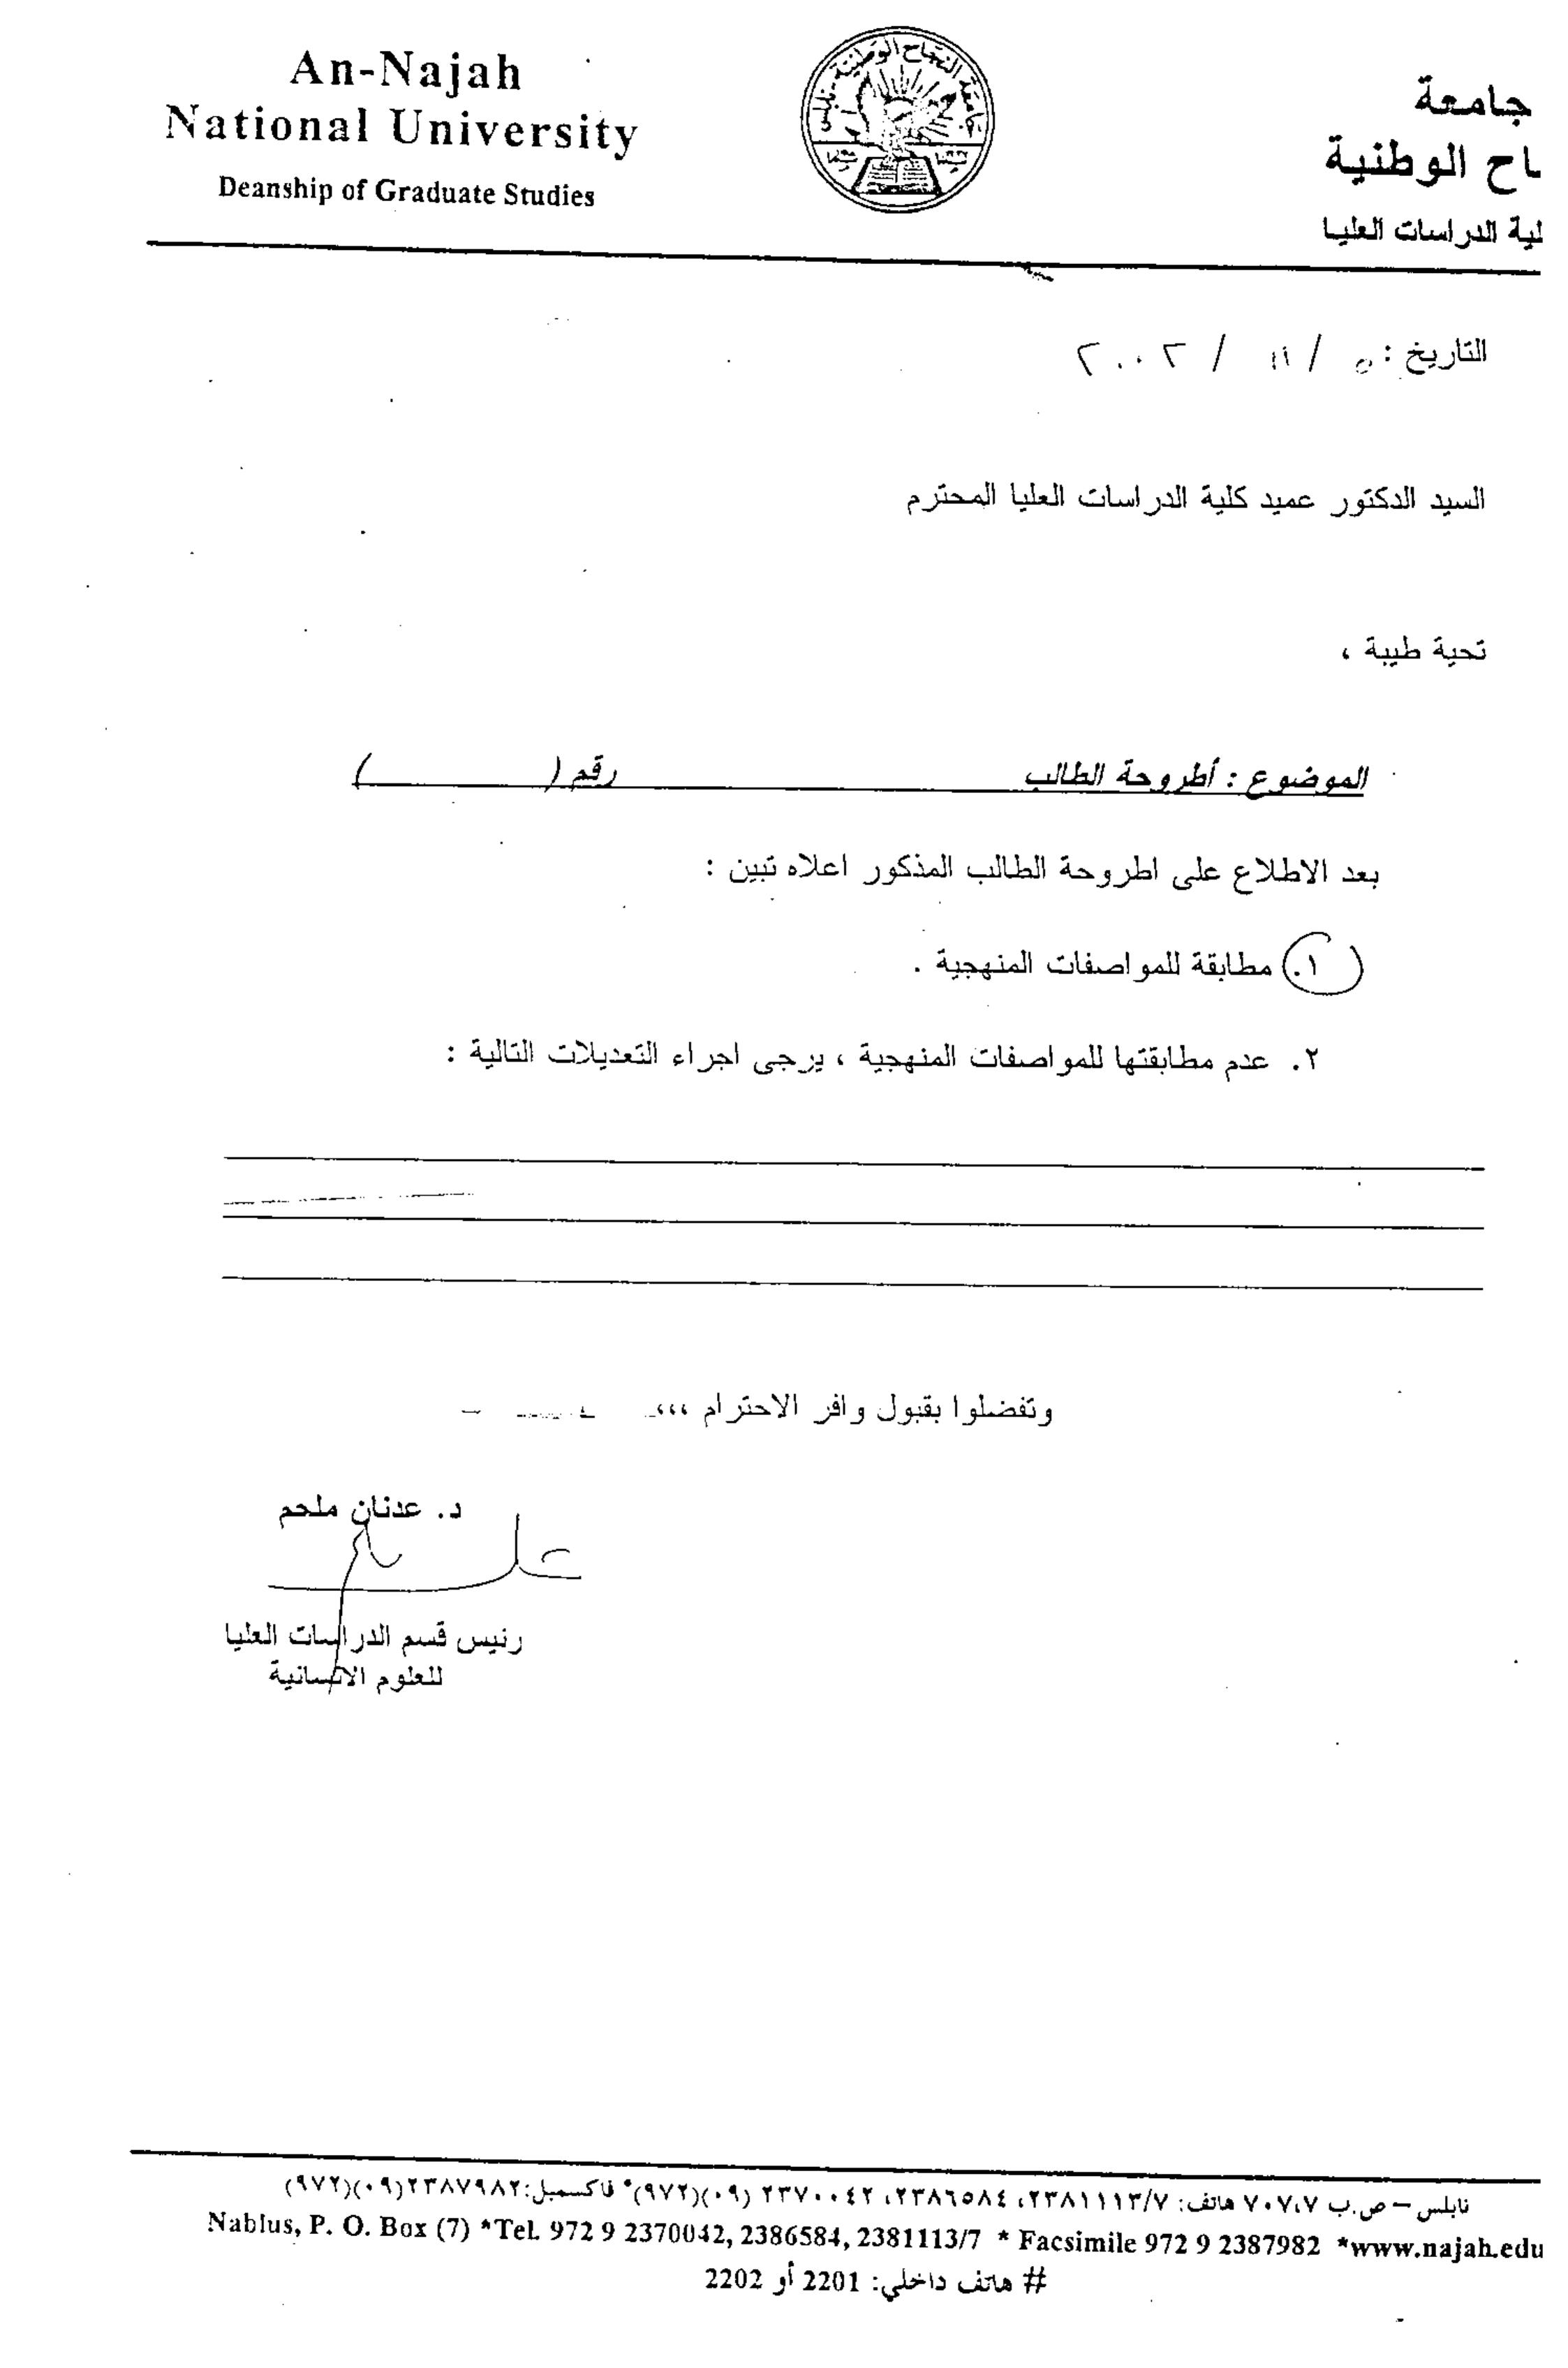 An-Najah
National University
Deanship of Graduate Studies
جامعة
ـاح الوطنية
لية الدراسات العليا
التاريخ : ٥ / ١١ / ٢٠٠٢
السيد الدكتور عميد كلية الدراسات العليا المحترم
تحية طيبة ،
الموضوع : أطروحة الطالب رقم ( )
بعد الاطلاع على اطروحة الطالب المذكور اعلاه تبين :
١. مطابقة للمواصفات المنهجية .
٢. عدم مطابقتها للمواصفات المنهجية ، يرجى اجراء التعديلات التالية :
وتفضلوا بقبول وافر الاحترام ،،،
د. عدنان ملحم
رئيس قسم الدراسات العليا
للعلوم الانسانية
نابلس – ص.ب ٧٠٧،٧ هاتف: ٢٣٨١١١٣/٧، ٢٣٨٦٥٨٤، ٢٣٧٠٠٤٢ (٠٩)(٩٧٢)* فاكسميل:٢٣٨٧٩٨٢(٠٩)(٩٧٢)
Nablus, P. O. Box (7) *Tel. 972 9 2370042, 2386584, 2381113/7 * Facsimile 972 9 2387982 *www.najah.edu
# هاتف داخلي: 2201 أو 2202